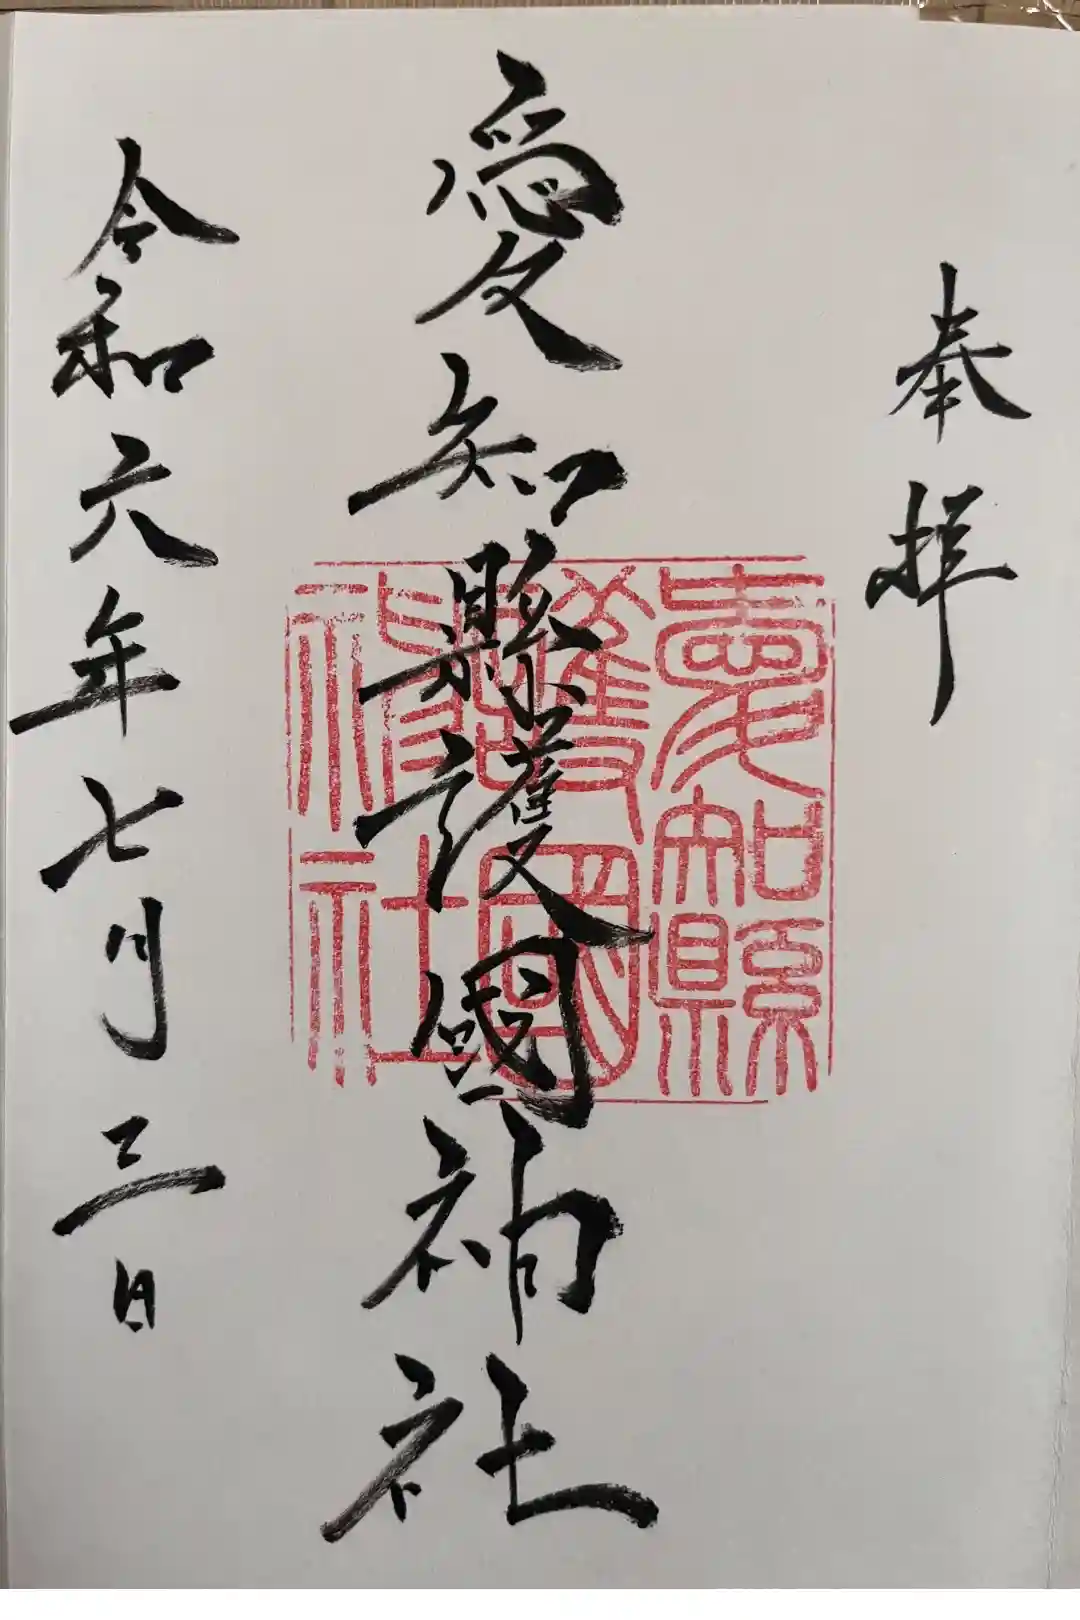 奉拝
愛知縣護國神社
愛知縣
護國
神社
令和六年七月三日